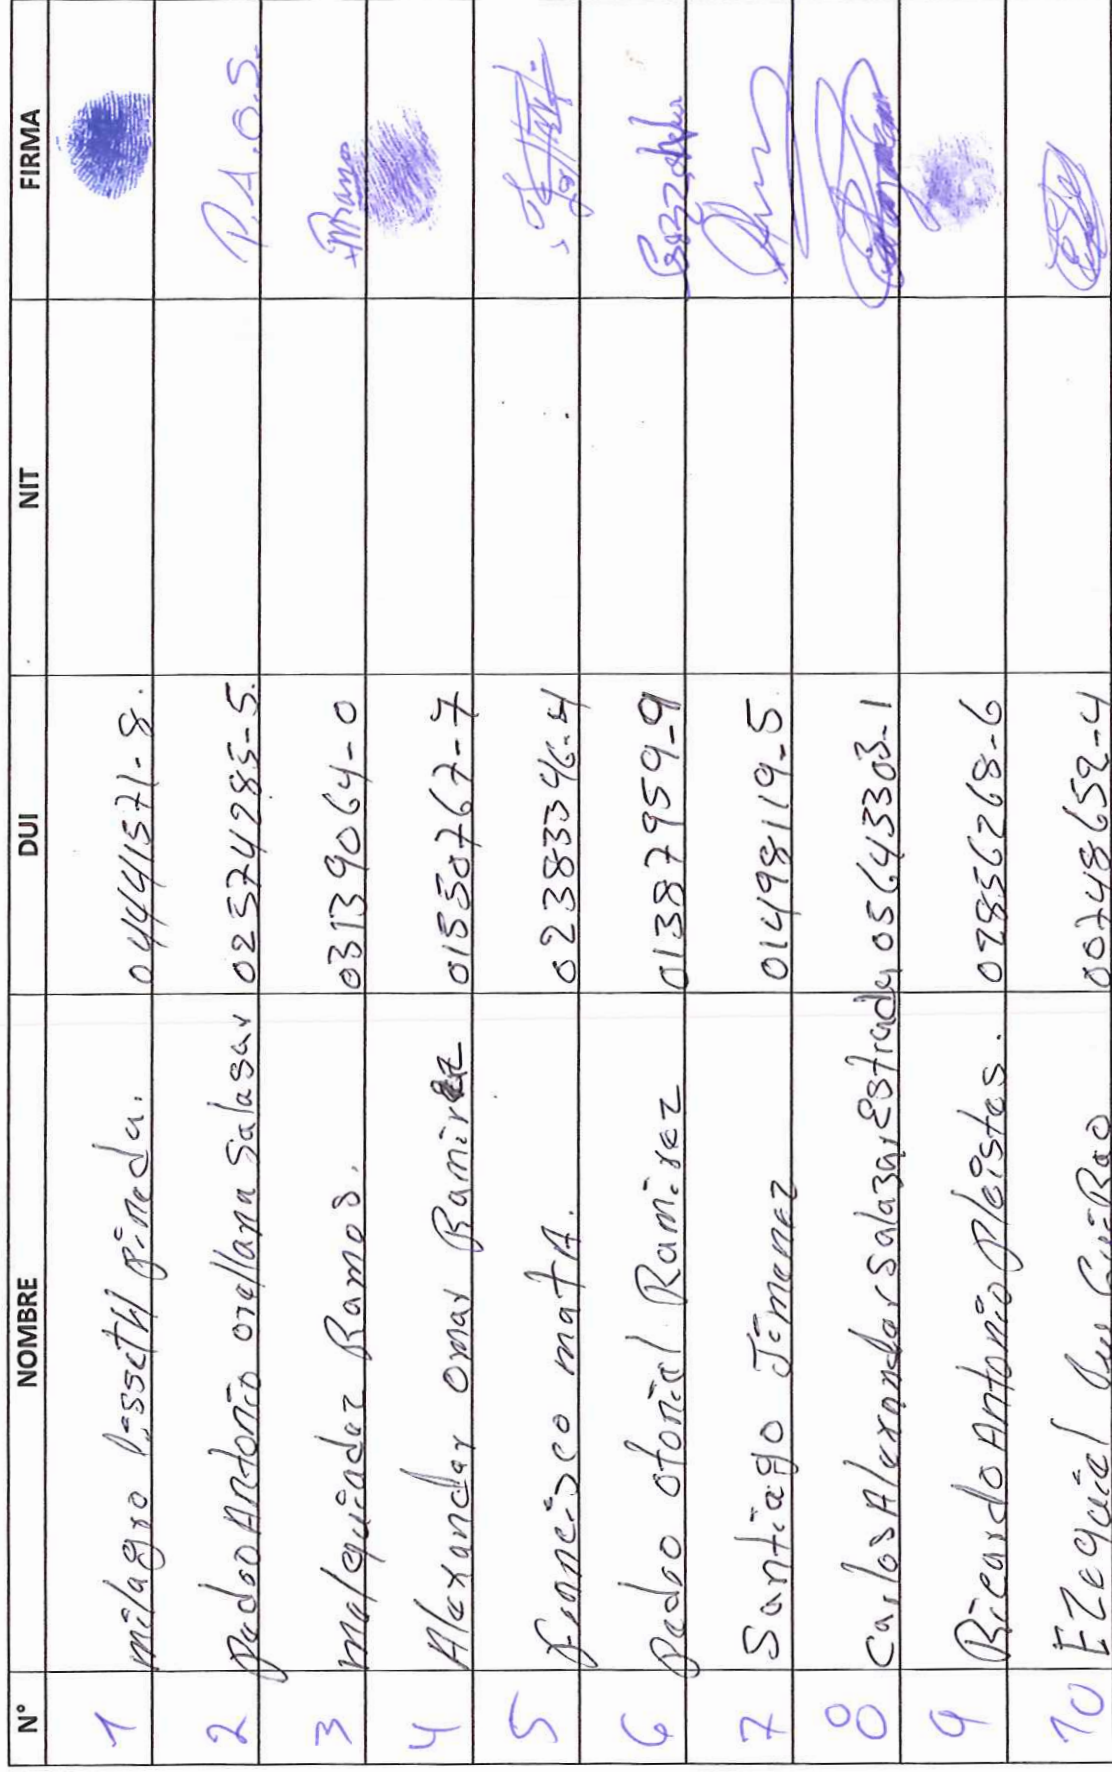 N° NOMBRE DUI NIT FIRMA
1 milagro Lissett pineda. 04441571-8.
2 pedro Antonio orellana Salasar 02574285-5. P.A.O.S.
3 melquiadez Ramos. 03139064-0
4 Alexander omar Ramirez 01550767-7
5 francisco matA. 02383396-4
6 pedro otoniel Ramirez 01387959-9
7 Santiago Jimenez 01498119-5
8 Carlos Alexander Salazar Estrada 05643303-1
9 Ricardo Antonio pleistes. 02856268-6
10 EZequiel 00748659-4